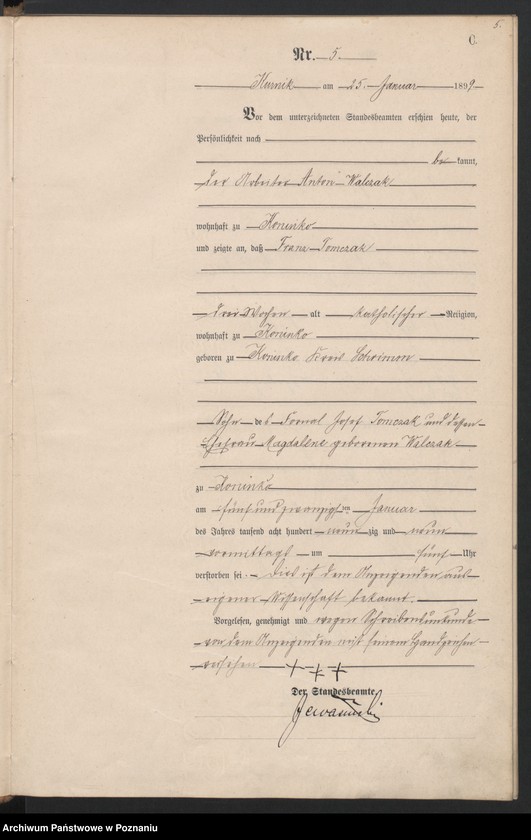 5.
C.
Nr. 5
Kurnik am 25. Januar 1899
Vor dem unterzeichneten Standesbeamten erschien heute, der
Persönlichkeit nach
be kannt,
der Arbeiter Anton Walczak
wohnhaft zu Koninko
und zeigte an, daß Franz Tomczak
drei Wochen alt katholischer Religion,
wohnhaft zu Koninko
geboren zu Koninko Kreis Schrimm
Sohn des Fornal Josef Tomczak und dessen
Ehefrau Magdalene geborenen Walczak
zu Koninko
am fünf und zwanzigsten Januar
des Jahres tausend acht hundert neun zig und neun
vormittags um fünf Uhr
verstorben sei. Dies ist dem Anzeigenden aus
eigener Wissenschaft bekannt.
Vorgelesen, genehmigt und wegen Schreibensunkunde
von dem Anzeigenden mit seinem Handzeichen
versehen +++
Der Standesbeamte.
Archiwum Państwowe w Poznaniu